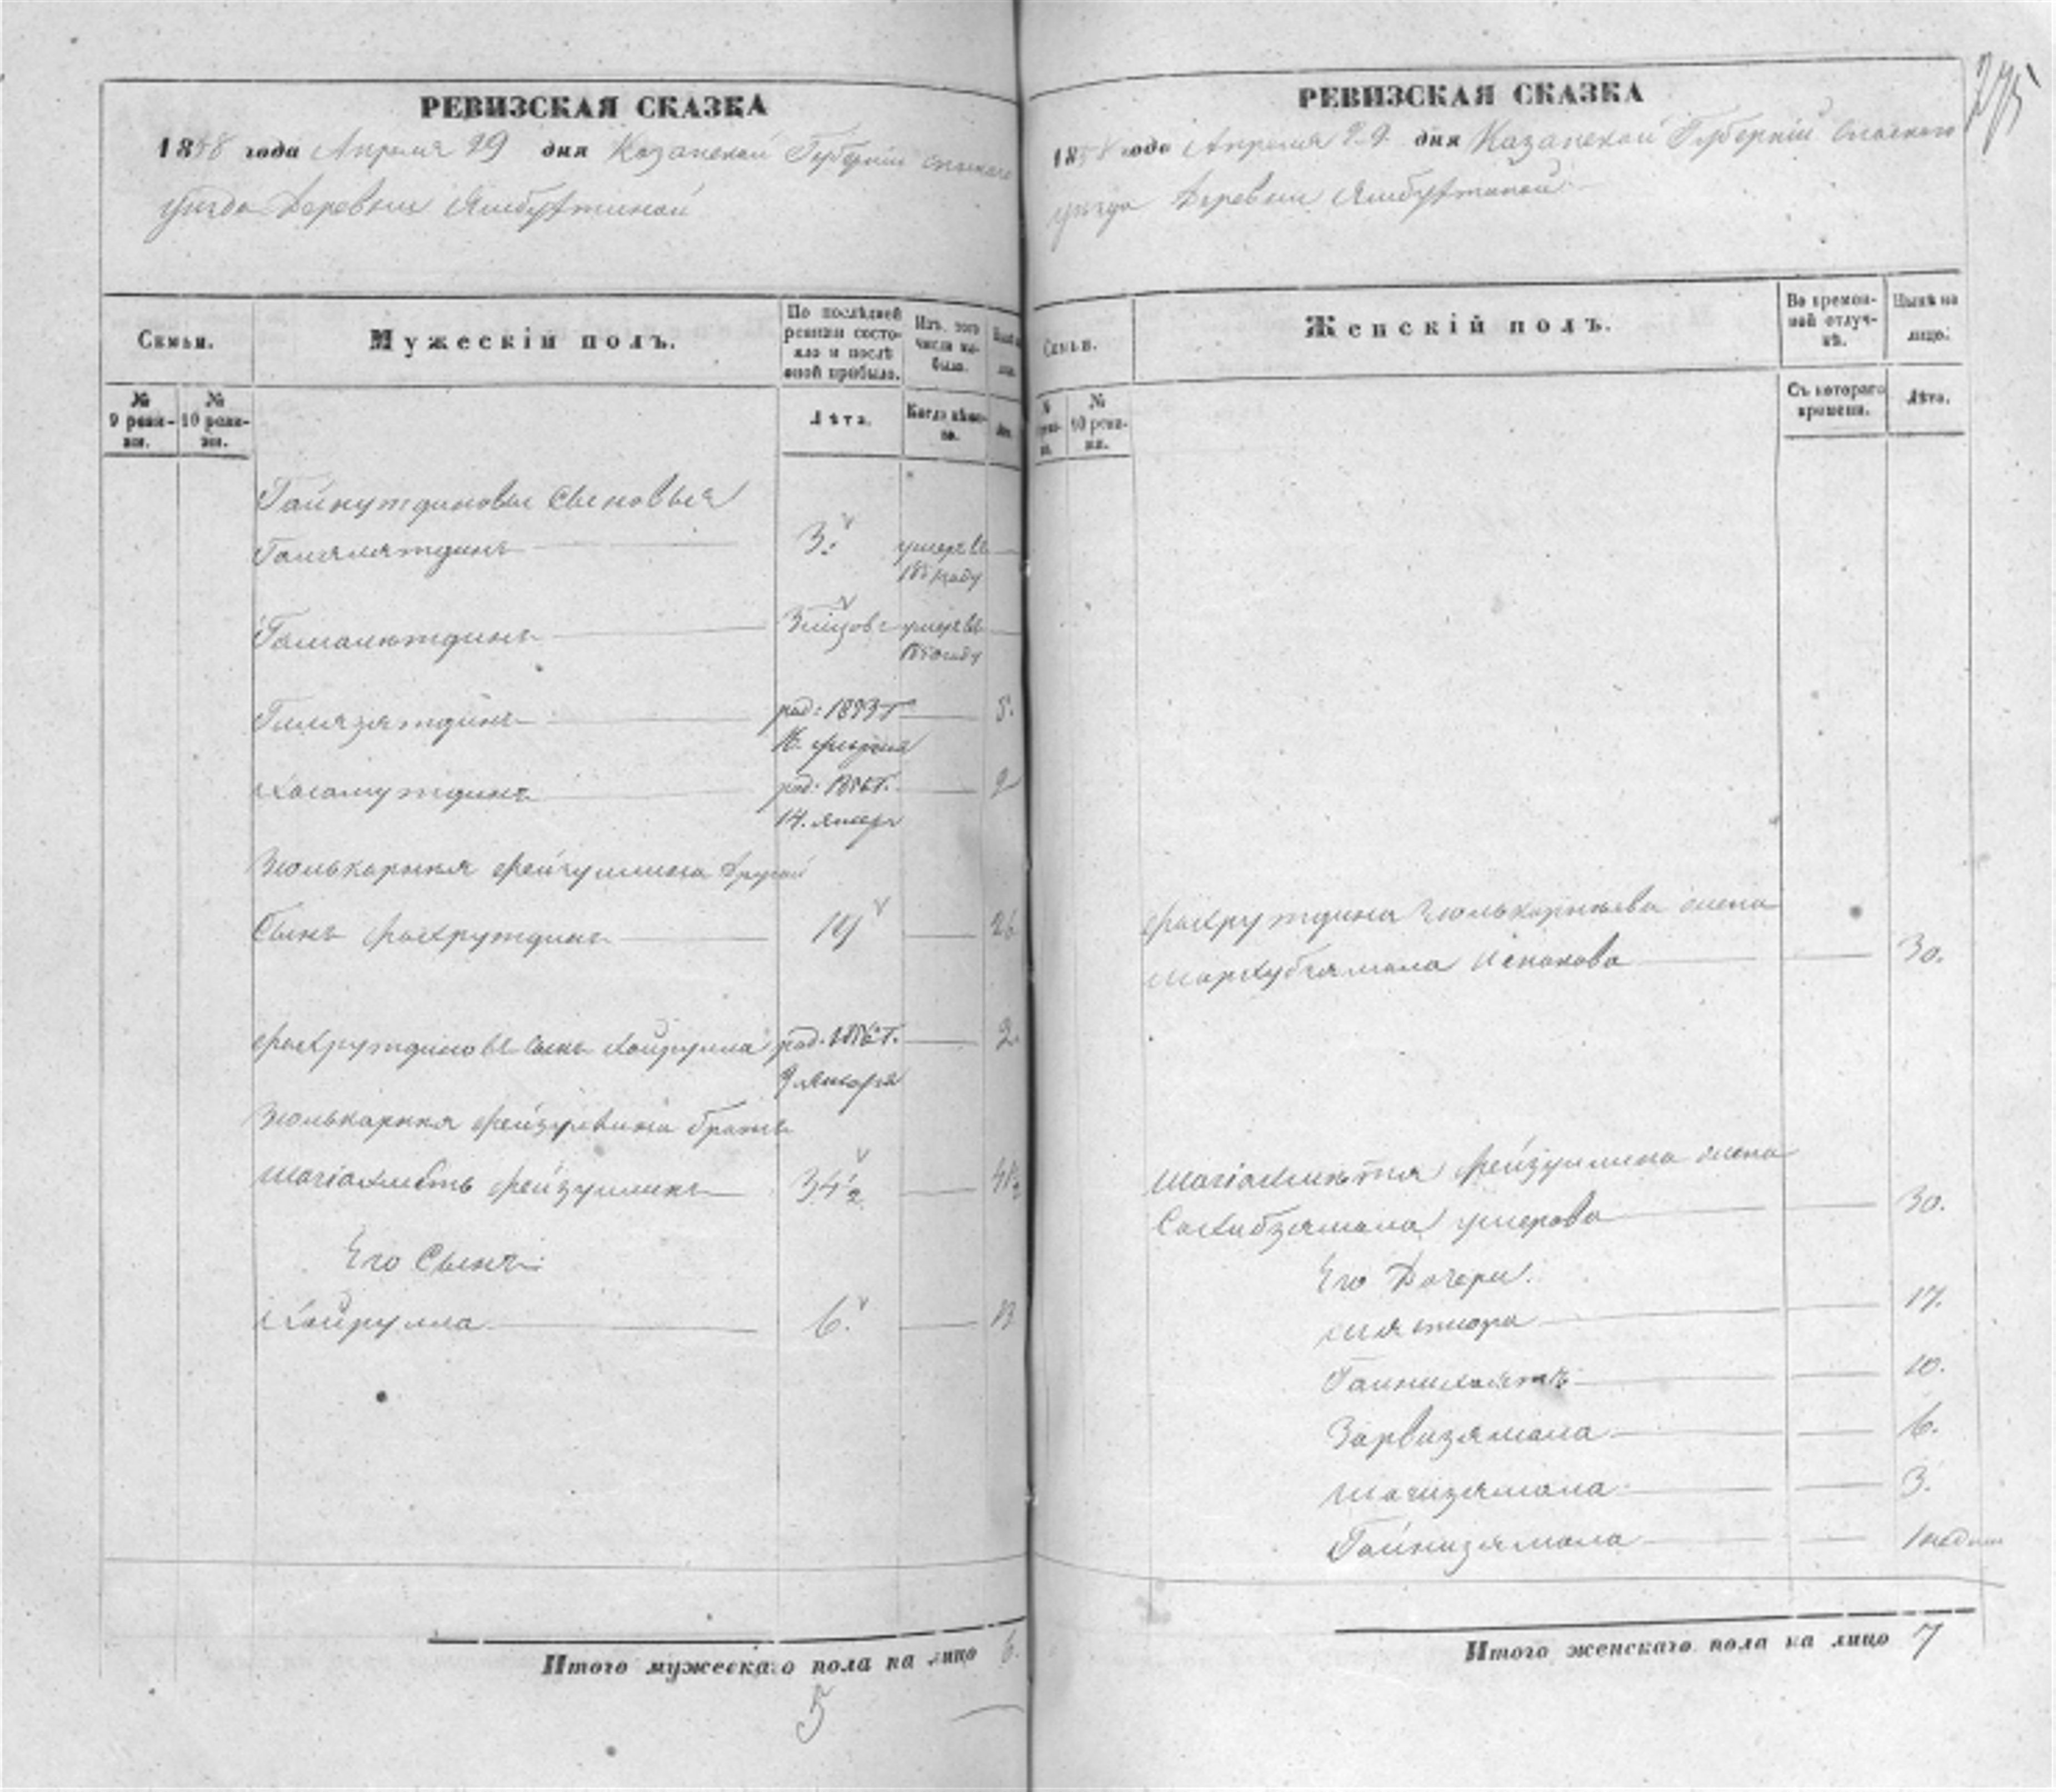 РЕВИЗСКАЯ СКАЗКА
1858 года Апреля 29 дня Казанской Губернии Спаскаго
уезда Деревни Ямбухтиной
Семьи.
Мужескій полъ.
По послѣдней ревизіи состояло и послѣ оной прибыло.
Изъ того числа выбыло.
№ 9 ревизіи.
№ 10 ревизіи.
Лѣта.
Когда именно.
Гайнутдиновы Сыновья
Галялятдинъ 3. умеръ въ
году
Гамалетдинъ умеръ въ
1850 году
Гилязятдинъ род: 1853 г 5.
февраля
Хисамутдинъ род: 1856 г. 2
14. Январ
Зюлькарнея Фейзуллина другой
Сынъ Фахрутдинъ 19 26
Фахрутдиновъ сынъ Хайрулла род. 1856 г. 2.
9 Января
Зюлькарнея Фейзуллина братъ
Шагіахметь Фейзуллинъ 34½
Его Сынъ:
Хайрулла 6. 13
Итого мужеска о пола на лицо 6.
5
275
РЕВИЗСКАЯ СКАЗКА
1858 года Апреля 29. дня Казанской Губерніи Спаскаго
уезда Деревни Ямбухтиной
Семьи.
Женскій полъ.
Во временной отлучкѣ.
Нынѣ на лицо.
№ 10 ревизіи.
Съ котораго времени.
Лѣта.
Фахрутдина Зюлькарнеева жена
Мархубзямала Испакова 30.
Шагіахметя Фейзуллина жена
Сахибзямала Умерова 30.
Его Дочери:
17.
10.
Зарвизямала 6.
Шагизямала 3.
Гайнизямала 1 недели
Итого женскаго пола на лицо 7